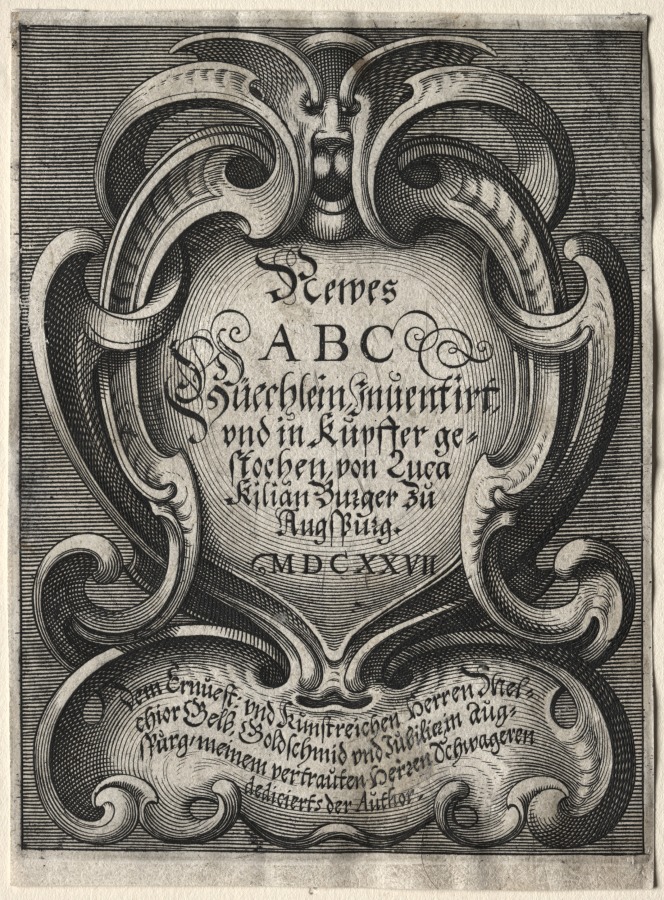 Newes
ABC
Büechlein Inuentirt,
vnd in Kupffer ge-
stochen, von Luca
Kilian Burger Zu
Augspurg.
MDCXXVII
Dem Ernuest: vnd Kunstreichen Herren Mel-
chior Gelb, Goldschmid vnd Jubilier in Aug-
spurg, meinem vertrauten Herren Schwageren
dedicierts der Author.